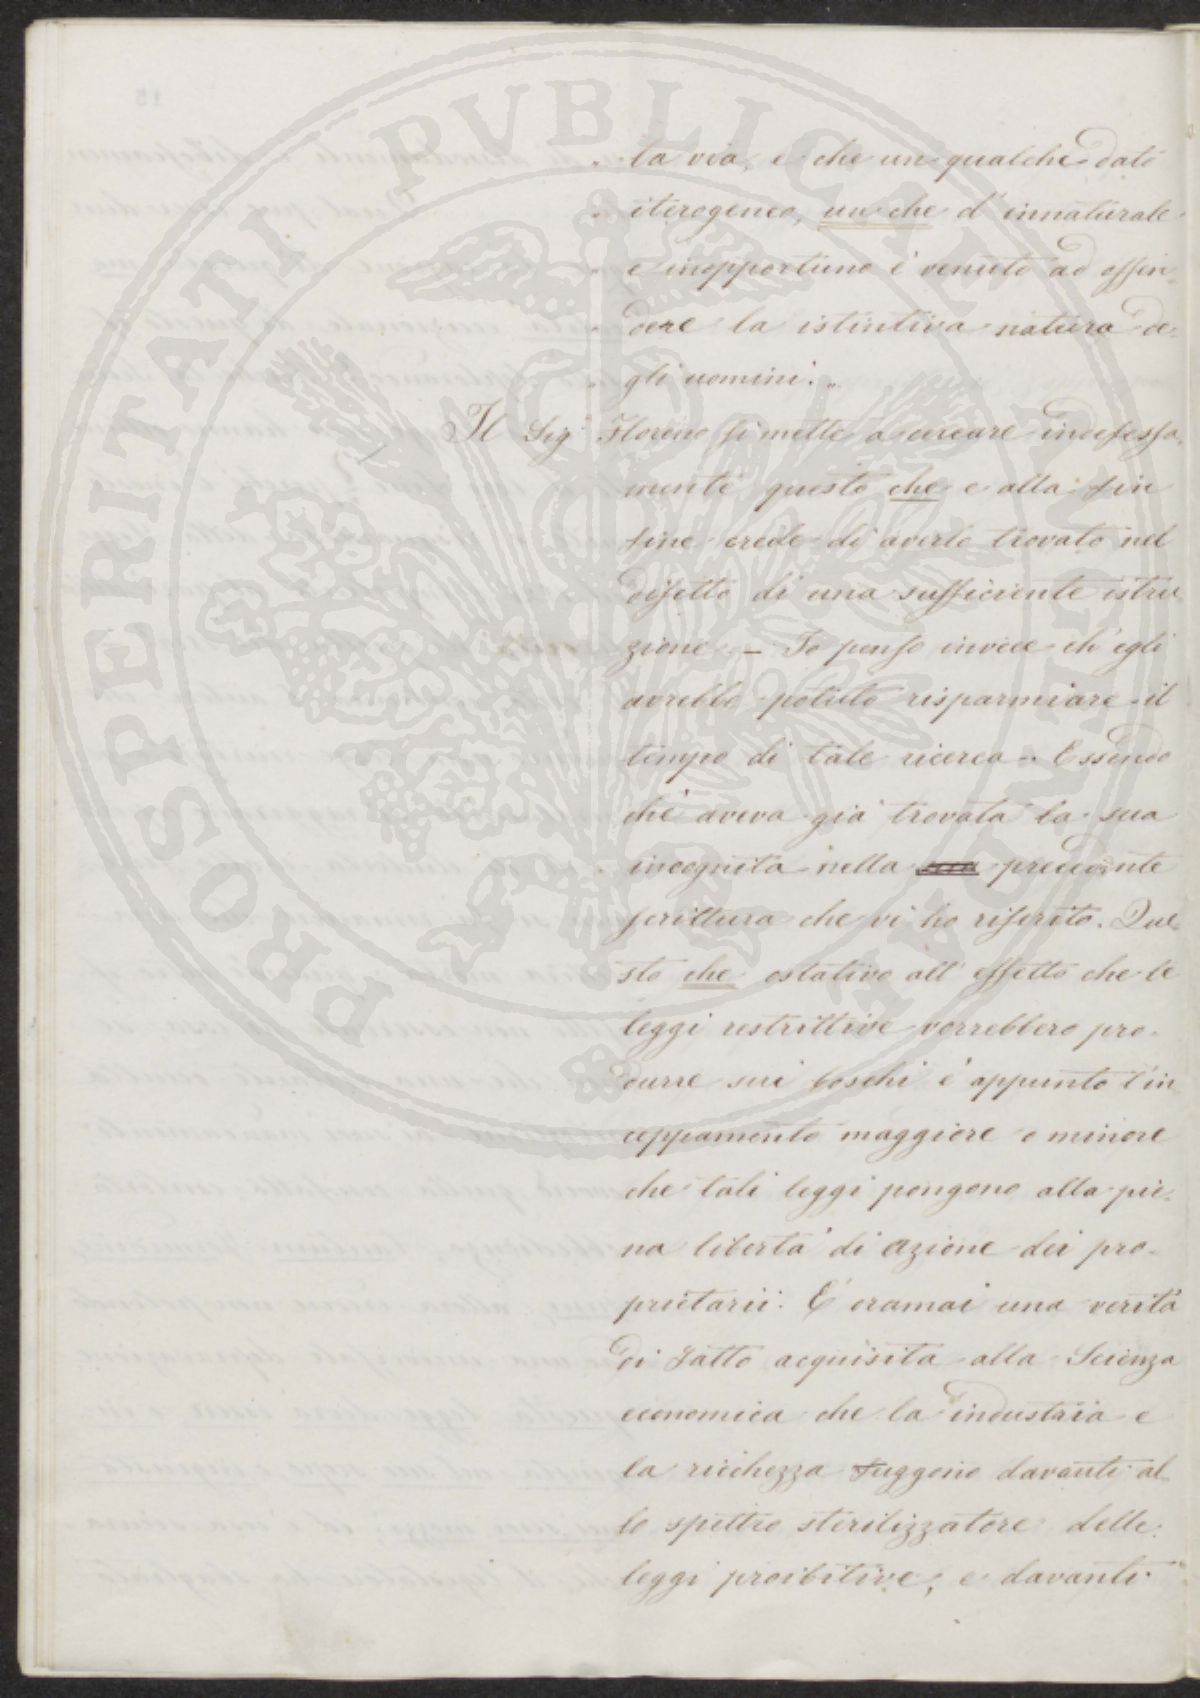 „ ta via, e che un qualche dato
„ iterogeneo, un che d'innaturale
„ e inopportuno è venuto ad offen-
„ dere la istintiva natura de-
„ gli uomini. „
Il Sig.r Floreno si mette a cercare indefessa-
mente questo che e alla fin
fine crede di averlo trovato nel
difetto di una sufficiente istru-
zione. – Io penso invece ch'egli
avrebbe potuto risparmiare il
tempo di tale ricerca. Essendo
chè aveva già trovata la sua
incognita nella precedente
scrittura che vi ho riferito. Que-
sto che ostativo all'effetto che le
leggi restrittive vorrebbero pro-
durre sui boschi è appunto l'in
ceppamento maggiore o minore
che tali leggi pongono alla pie-
na libertà di azione dei pro-
prietarii. È oramai una verità
di fatto acquisita alla Scienza
economica che la industria e
la ricchezza fuggono davanti al-
lo spettro sterilizzatore delle
leggi proibitive, e davanti
PROSPERITATI PVBLICAE AVGENDAE